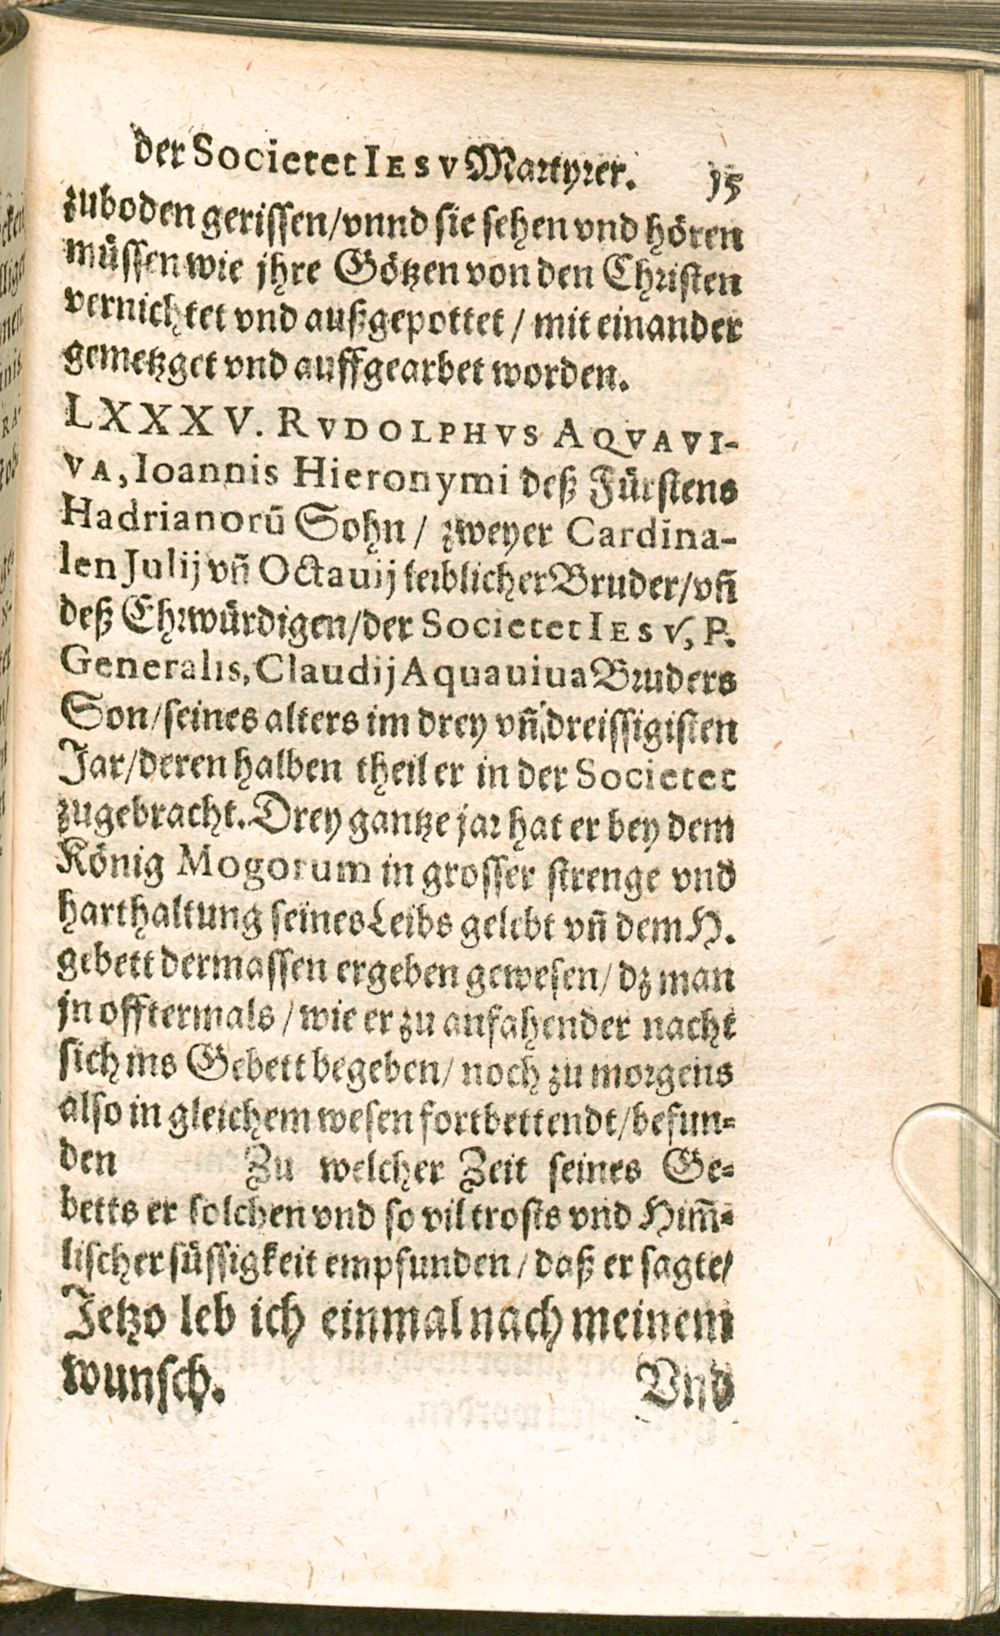 der Societet IESV Martyrer. 15
zuboden gerissen/vnnd sie sehen vnd hören
müssen wie jhre Götzen von den Christen
vernichtet vnd außgepottet / mit einander
gemetzget vnd auffgearbet worden.
LXXXV. RVDOLPHVS AQVAVI-
VA, Ioannis Hieronymi deß Fürstens
Hadrianorū Sohn / zweyer Cardina-
len Julij vñ Octauij leiblicher Bruder/vñ
deß Ehrwürdigen/der Societet IESV, P.
Generalis, Claudij Aquauiua Bruders
Son/seines alters im drey vñ dreissigisten
Jar/deren halben theil er in der Societet
zugebracht. Drey gantze jar hat er bey dem
König Mogorum in grosser strenge vnd
harthaltung seines Leibs gelebt vñ dem H.
gebett dermassen ergeben gewesen/ dz man
jn offtermals / wie er zu anfahender nacht
sich ins Gebett begeben/ noch zu morgens
also in gleichem wesen fortbettendt/befun-
den Zu welcher Zeit seines Ge-
betts er solchen vnd so vil trosts vnd Him̃-
lischer süssigkeit empfunden / daß er sagte/
Jetzo leb ich einmal nach meinem
wunsch. Vnd